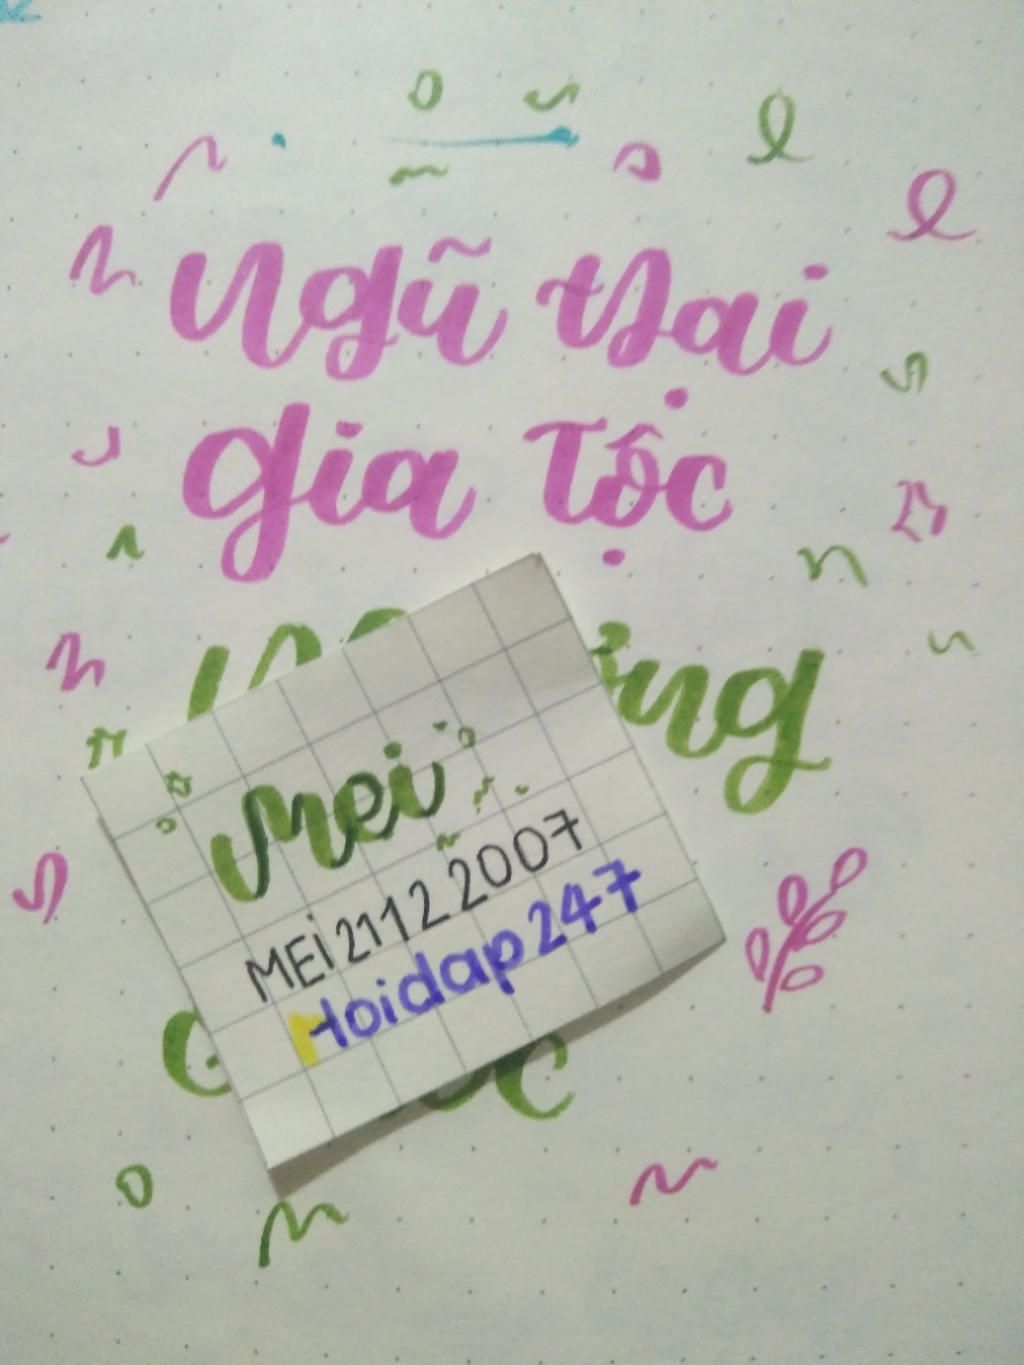 Ngũ đại
gia tộc
Mei
MEi 2112 2007
Hoidap247